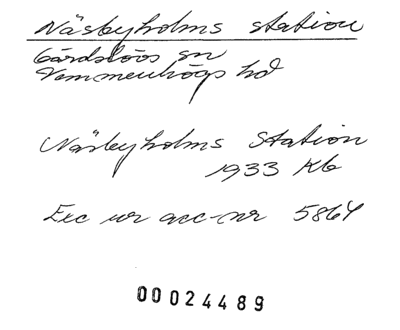 Näsbyholms station
Gärdslövs sn
Vemmenhögs hd
Näsbyholms Station
1933 Kb
Exc ur acc-nr 5864
00024489